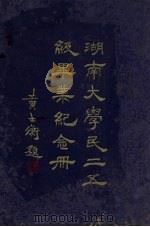 湖南大學民二五
級畢業紀念冊
黃士衡題